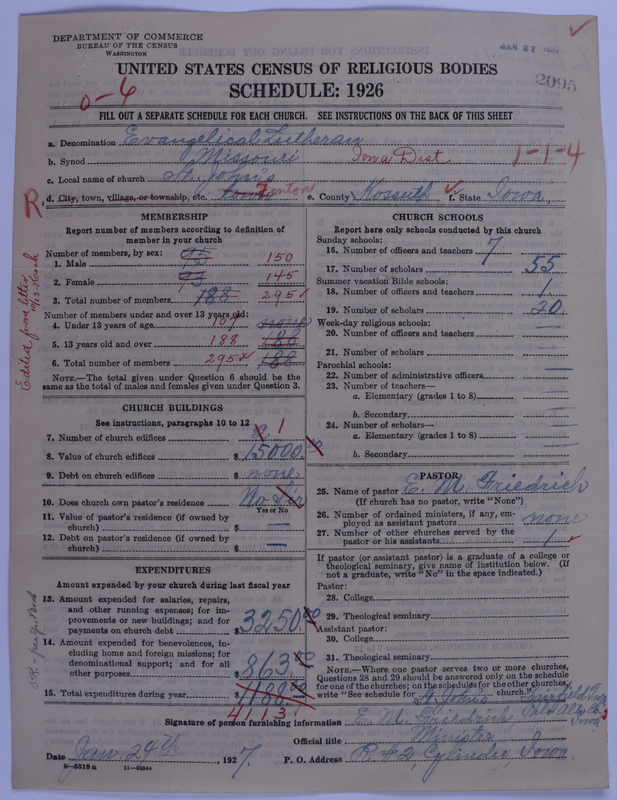 DEPARTMENT OF COMMERCE
BUREAU OF THE CENSUS
WASHINGTON
JAN 27
UNITED STATES CENSUS OF RELIGIOUS BODIES
SCHEDULE: 1926
2095
0-6
FILL OUT A SEPARATE SCHEDULE FOR EACH CHURCH. SEE INSTRUCTIONS ON THE BACK OF THIS SHEET
a. Denomination Evangelical Lutheran
b. Synod Missouri Iowa Dist 1-1-4
c. Local name of church St. John's
R d. City, town, village, or township, etc. Fenton e. County Kossuth f. State Iowa
MEMBERSHIP
Report number of members according to definition of member in your church
Number of members, by sex:
1. Male 95 150
2. Female 93 145
3. Total number of members 188 295
Number of members under and over 13 years old:
4. Under 13 years of age 107 none
5. 13 years old and over 188 188
6. Total number of members 295 188
NOTE.—The total given under Question 6 should be the same as the total of males and females given under Question 3.
Edited from letter
CHURCH BUILDINGS
See instructions, paragraphs 10 to 12
7. Number of church edifices 2 1
8. Value of church edifices $ 15000.
9. Debt on church edifices $ none
10. Does church own pastor's residence No Sir
Yes or No
11. Value of pastor's residence (if owned by church) $ —
12. Debt on pastor's residence (if owned by church) $ —
EXPENDITURES
Amount expended by your church during last fiscal year
13. Amount expended for salaries, repairs, and other running expenses; for improvements or new buildings; and for payments on church debt $ 3250.00
14. Amount expended for benevolences, including home and foreign missions; for denominational support; and for all other purposes $ 863.
15. Total expenditures during year $ 4113
CHURCH SCHOOLS
Report here only schools conducted by this church
Sunday schools:
16. Number of officers and teachers 7
17. Number of scholars 55
Summer vacation Bible schools:
18. Number of officers and teachers 1
19. Number of scholars 20.
Week-day religious schools:
20. Number of officers and teachers —
21. Number of scholars —
Parochial schools:
22. Number of administrative officers —
23. Number of teachers—
a. Elementary (grades 1 to 8) —
b. Secondary —
24. Number of scholars—
a. Elementary (grades 1 to 8) —
b. Secondary —
PASTOR
25. Name of pastor E. M. Friedrich
(If church has no pastor, write "None")
26. Number of ordained ministers, if any, employed as assistant pastors none
27. Number of other churches served by the pastor or his assistants 1
If pastor (or assistant pastor) is a graduate of a college or theological seminary, give name of institution below. (If not a graduate, write "No" in the space indicated.)
Pastor:
28. College
29. Theological seminary
Assistant pastor:
30. College
31. Theological seminary
NOTE.—Where one pastor serves two or more churches, Questions 28 and 29 should be answered only on the schedule for one of the churches; on the schedules for the other churches, write "See schedule for St. John's church." Fairfield
Iowa
Signature of person furnishing information E. M. Friedrich
Official title Minister
Date Jan. 24th, 1927. P. O. Address R. #2, Cylinder, Iowa
8—5515 a